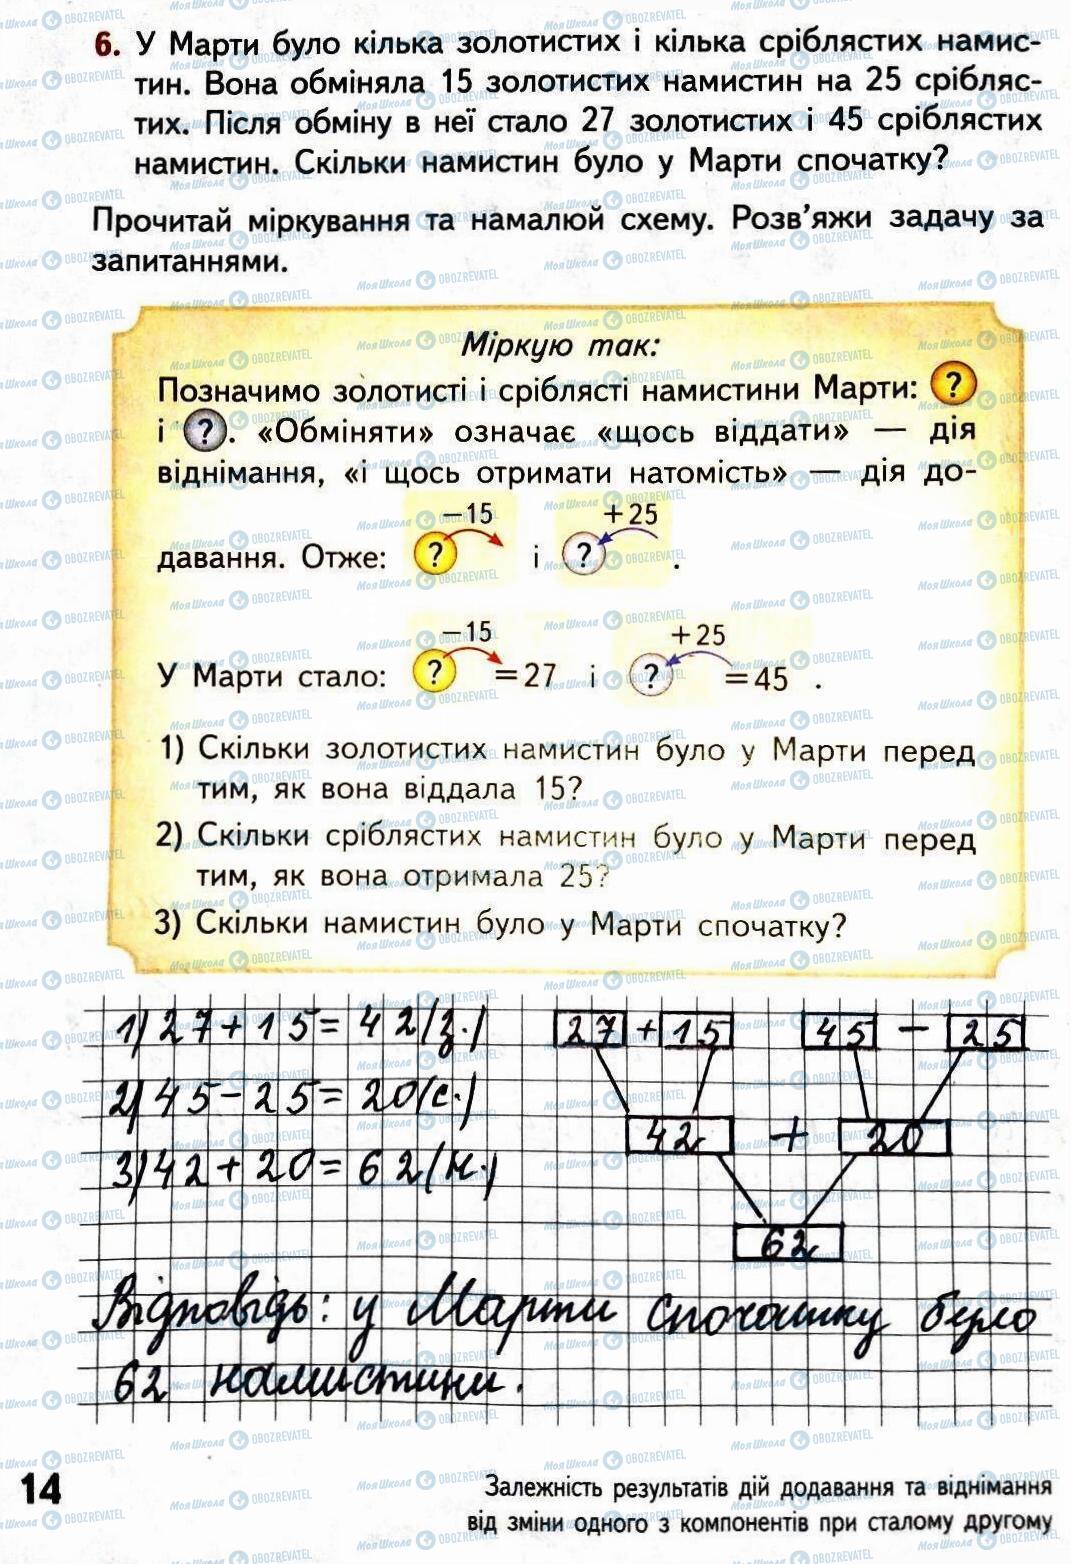 6. У Марти було кілька золотистих і кілька сріблястих намис-
тин. Вона обміняла 15 золотистих намистин на 25 срібляс-
тих. Після обміну в неї стало 27 золотистих і 45 сріблястих
намистин. Скільки намистин було у Марти спочатку?
Прочитай міркування та намалюй схему. Розв’яжи задачу за
запитаннями.
Міркую так:
Позначимо золотисті і сріблясті намистини Марти: ?
і ?. «Обміняти» означає «щось віддати» — дія
віднімання, «і щось отримати натомість» — дія до-
−15 +25
давання. Отже: ? і ? .
−15 +25
У Марти стало: ? =27 і ? =45 .
1) Скільки золотистих намистин було у Марти перед
тим, як вона віддала 15?
2) Скільки сріблястих намистин було у Марти перед
тим, як вона отримала 25?
3) Скільки намистин було у Марти спочатку?
1) 27+15=42(з.) 27+15 45−25
2) 45−25=20(с.) 42 + 20
3) 42+20=62(н.)
62
Відповідь: у Марти спочатку було
62 намистини.
14
Залежність результатів дій додавання та віднімання
від зміни одного з компонентів при сталому другому
МояШкола OBOZREVATEL